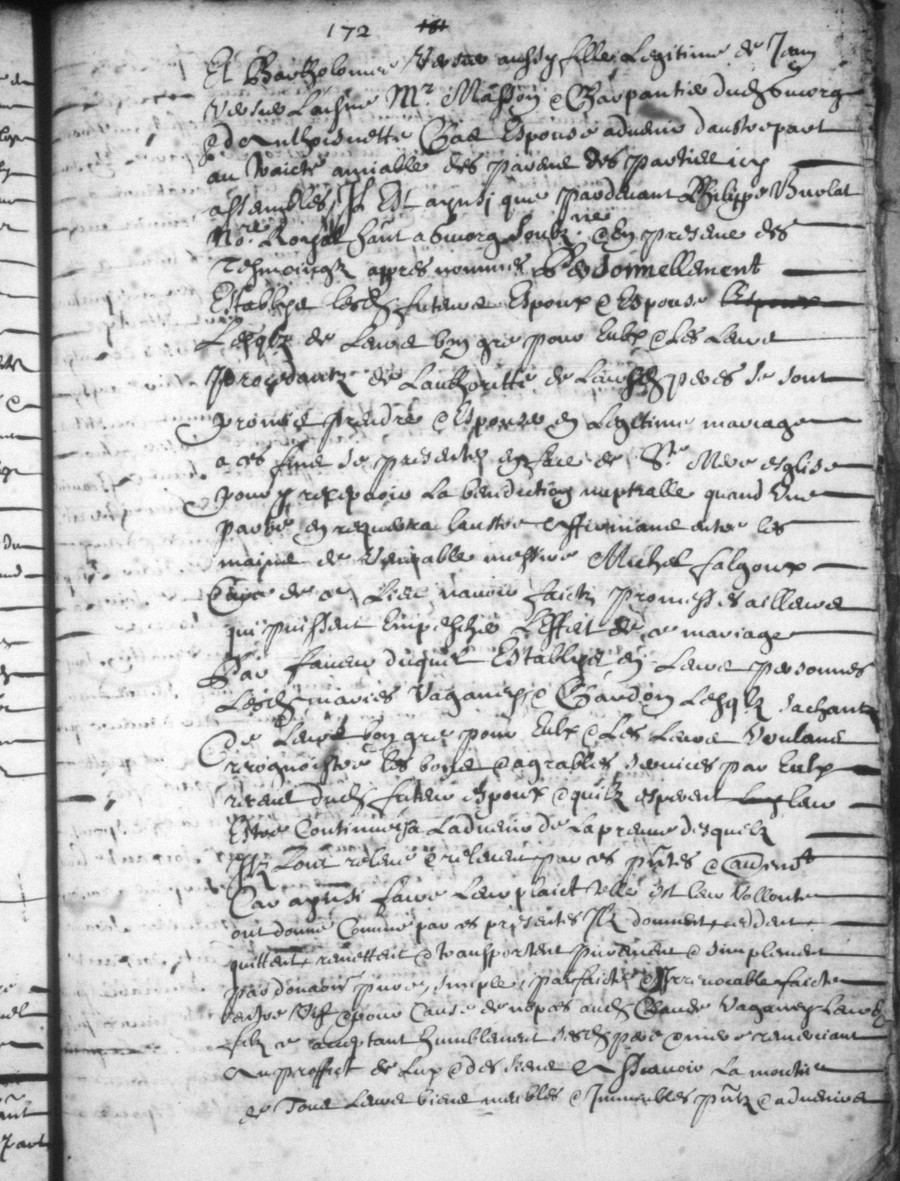 172
Et Bartholomie Verne aussy fille Legitime de Jean
Verne Laisne Mr. Masson & Charpantier dud. Smorg
& de Anthoinette Espouse advenir daustre part
au traicte amiable des parens des parties icy
assemblés Il Est ainsi que pardevant Philippe Buolat
Nore. Royal hant a Smorg soubz.né & en presence des
Tesmoingz appres nommés Personnellement
Establys lesd. futeurs Espoux & Espouse
Lesqlz de Leurs bon gre pour Eulx & Les Leurs
procedantz de Lauthoritté de Leursd peres se sont
promis prendre & Espouser en Legitime mariage
a ces fins se presenter en face de Ste Mere esglise
pour y recepvoir La benediction nuptialle quand Une
partie en requerra laustre affirmant entre les
mains de Venerable messire Michel falgoux
Cure de ce Lieu navoir faictz promesses ailleurs
qui puissent Empescher Leffect de ce mariage
Par faveur duquel Establys en Leurs personnes
Lesd. maries Vaganey & Chardon Lesqlz sachantz
De Leurs bon gre pour Eulx & Les Leurs Voulans
recognoistre les bons & agreables services par Eulx
receus dud. futeur espoux & quilz esperent leur
Estre Continués a Ladvenir de La preuve desquelz
Ilz Lont releve & relevent par ces pntes &
Car ainsi faire Leur plaict telle est leur Vollonte
ont donné Comme par ces presentes Ilz donnent cedent
quittent remettent & transportent purement & simplement
par donation pure, simple, parfaicte & Irrevocable faicte
entre Vifs & pour Cause de nopces aud. Claude Vaganey Leur
filz ce acceptant humblement sesd. pere & mere remerciant
Au proffict de Luy & des siens A Scavoir La moitie
de Tous Leurs biens meubles & Immeubles pntz & advenirs